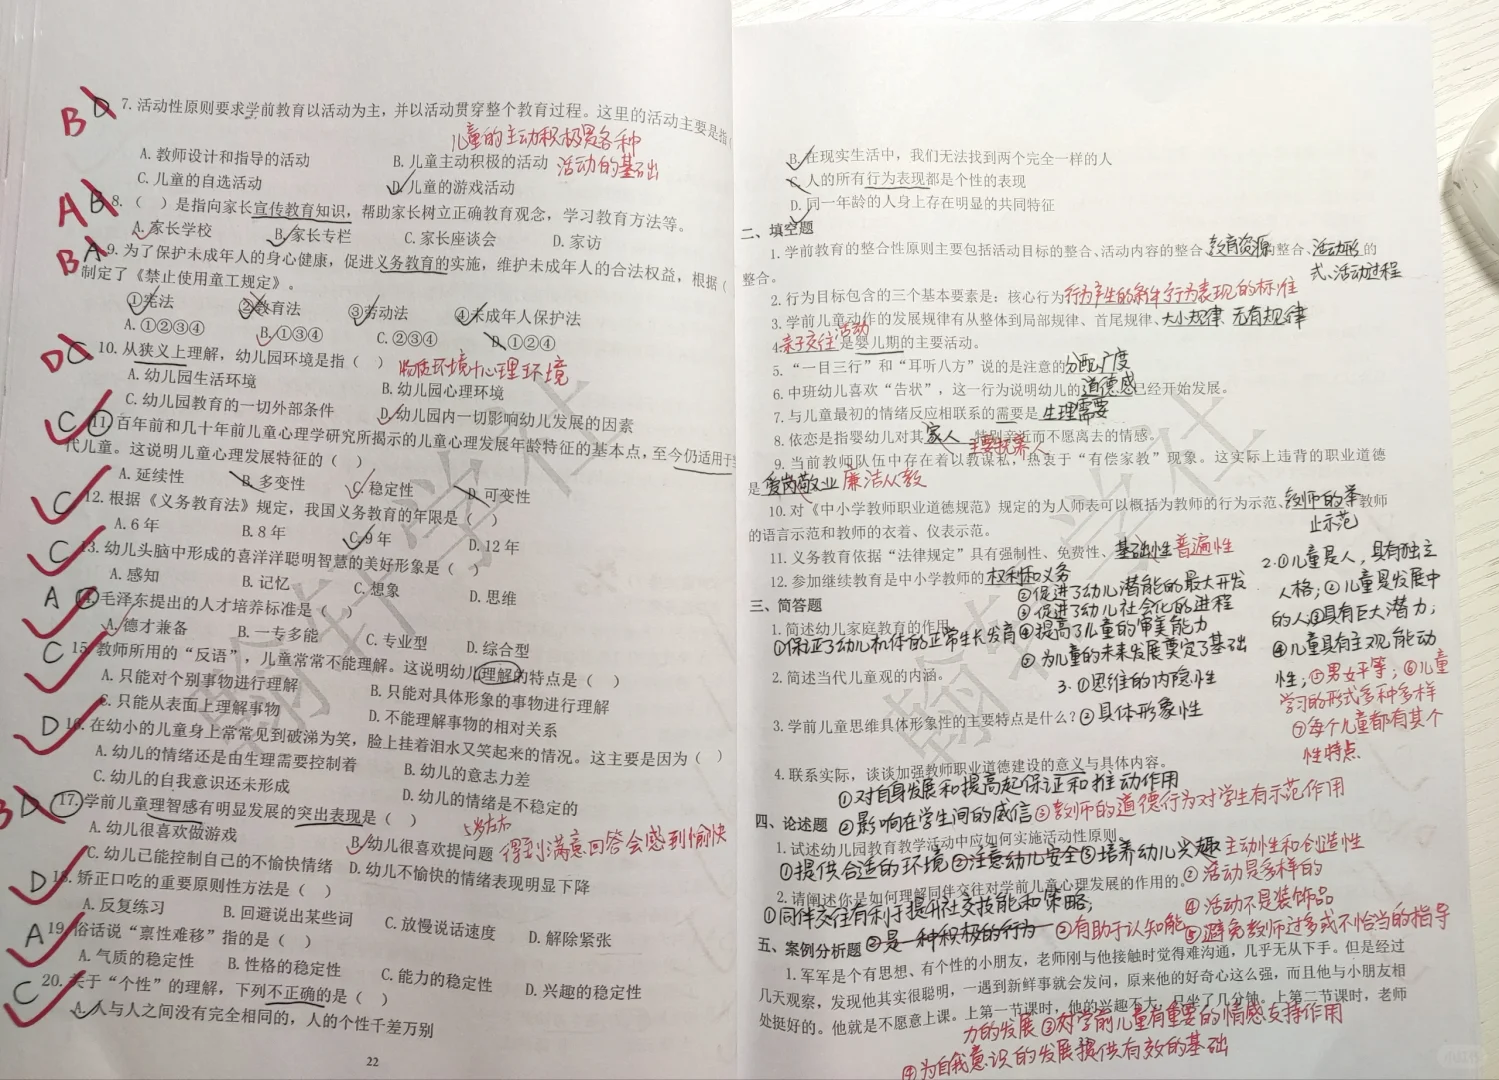 B D 7. 活动性原则要求学前教育以活动为主，并以活动贯穿整个教育过程。这里的活动主要是指(
儿童的主动积极是各种
A. 教师设计和指导的活动 B. 儿童主动积极的活动 活动的基础
C. 儿童的自选活动 D. 儿童的游戏活动
A B 8. （ ）是指向家长宣传教育知识，帮助家长树立正确教育观念，学习教育方法等。
A. 家长学校 B. 家长专栏 C. 家长座谈会 D. 家访
B A 9. 为了保护未成年人的身心健康，促进义务教育的实施，维护未成年人的合法权益，根据（
制定了《禁止使用童工规定》。
①宪法 ②教育法 ③劳动法 ④未成年人保护法
A. ①②③④ B. ①③④ C. ②③④ D. ①②④
D C 10. 从狭义上理解，幼儿园环境是指（ ） 物质环境+心理环境
A. 幼儿园生活环境 B. 幼儿园心理环境
C. 幼儿园教育的一切外部条件 D. 幼儿园内一切影响幼儿发展的因素
C 11. 百年前和几十年前儿童心理学研究所揭示的儿童心理发展年龄特征的基本点，至今仍适用于
代儿童。这说明儿童心理发展特征的（ ）
A. 延续性 B. 多变性 C. 稳定性 D. 可变性
C 12. 根据《义务教育法》规定，我国义务教育的年限是（ ）
A. 6 年 B. 8 年 C. 9 年 D. 12 年
C 13. 幼儿头脑中形成的喜洋洋聪明智慧的美好形象是（ ）
A. 感知 B. 记忆 C. 想象 D. 思维
A 14. 毛泽东提出的人才培养标准是（
A. 德才兼备 B. 一专多能 C. 专业型 D. 综合型
C 15. 教师所用的“反语”，儿童常常不能理解。这说明幼儿理解的特点是（ ）
A. 只能对个别事物进行理解 B. 只能对具体形象的事物进行理解
C. 只能从表面上理解事物 D. 不能理解事物的相对关系
D 16. 在幼小的儿童身上常常见到破涕为笑，脸上挂着泪水又笑起来的情况。这主要是因为（ ）
A. 幼儿的情绪还是由生理需要控制着 B. 幼儿的意志力差
C. 幼儿的自我意识还未形成 D. 幼儿的情绪是不稳定的
B D 17. 学前儿童理智感有明显发展的突出表现是（ ）
5岁左右
A. 幼儿很喜欢做游戏 B. 幼儿很喜欢提问题 得到满意回答会感到愉快
C. 幼儿已能控制自己的不愉快情绪 D. 幼儿不愉快的情绪表现明显下降
D 18. 矫正口吃的重要原则性方法是（ ）
A. 反复练习 B. 回避说出某些词 C. 放慢说话速度 D. 解除紧张
A 19. 俗话说“禀性难移”指的是（ ）
A. 气质的稳定性 B. 性格的稳定性 C. 能力的稳定性 D. 兴趣的稳定性
C 20. 关于“个性”的理解，下列不正确的是（ ）
A. 人与人之间没有完全相同的，人的个性千差万别
22
B. 在现实生活中，我们无法找到两个完全一样的人
C. 人的所有行为表现都是个性的表现
D. 同一年龄的人身上存在明显的共同特征
二、填空题
1. 学前教育的整合性原则主要包括活动目标的整合、活动内容的整合、教育资源的整合、活动形的
整合。 式、活动过程
2. 行为目标包含的三个基本要素是：核心行为 行为产生的条件 行为表现的标准
3. 学前儿童动作的发展规律有从整体到局部规律、首尾规律、大小规律 无有规律
4. 亲子交往活动是婴儿期的主要活动。
5. “一目三行”和“耳听八方”说的是注意的分配 广度
6. 中班幼儿喜欢“告状”，这一行为说明幼儿的道德感已经开始发展。
7. 与儿童最初的情绪反应相联系的需要是 生理需要
8. 依恋是指婴幼儿对其 家人 特别亲近而不愿离去的情感。
主要抚养人
9. 当前教师队伍中存在着以教谋私，热衷于“有偿家教”现象。这实际上违背的职业道德
是 爱岗敬业 廉洁从教
10. 对《中小学教师职业道德规范》规定的为人师表可以概括为教师的行为示范、教师的举教师
的语言示范和教师的衣着、仪表示范。 止示范
11. 义务教育依据“法律规定”具有强制性、免费性、基础性 普遍性
12. 参加继续教育是中小学教师的 权利和义务
三、简答题
1. 简述幼儿家庭教育的作用
②促进了幼儿潜能的最大开发
③促进了幼儿社会化的进程
①保证了幼儿机体的正常生长发育④提高了儿童的审美能力
⑤为儿童的未来发展奠定了基础
2. 简述当代儿童观的内涵。
2.①儿童是人，具有独立
人格；②儿童是发展中
的人；③具有巨大潜力；
④儿童具有主观能动
性；⑤男女平等；⑥儿童
学习的形式多种多样
⑦每个儿童都有其个
性特点
3. 学前儿童思维具体形象性的主要特点是什么？
3.①思维的内隐性
②具体形象性
4. 联系实际，谈谈加强教师职业道德建设的意义与具体内容。
①对自身发展和提高起保证和推动作用
②影响在学生间的威信③教师的道德行为对学生有示范作用
四、论述题
1. 试述幼儿园教育教学活动中应如何实施活动性原则。
①提供合适的环境②注意幼儿安全③培养幼儿兴趣 主动性和创造性
②活动是多样的
2. 请阐述你是如何理解同伴交往对学前儿童心理发展的作用的。
④活动不是装饰品
①同伴交往有利于提升社交技能和策略；
②是一种积极的行为 ②有助于认知能 ⑤避免教师过多或不恰当的指导
五、案例分析题
1. 军军是个有思想、有个性的小朋友，老师刚与他接触时觉得难沟通，几乎无从下手。但是经过
几天观察，发现他其实很聪明，一遇到新鲜事就会发问，原来他的好奇心这么强，而且他与小朋友相
处挺好的。他就是不愿意上课。上第一节课时，他的兴趣不大，只坐了几分钟。上第二节课时，老师
力的发展③对学前儿童有重要的情感支持作用
④为自我意识的发展提供有效的基础
翰轩学社
翰轩学社